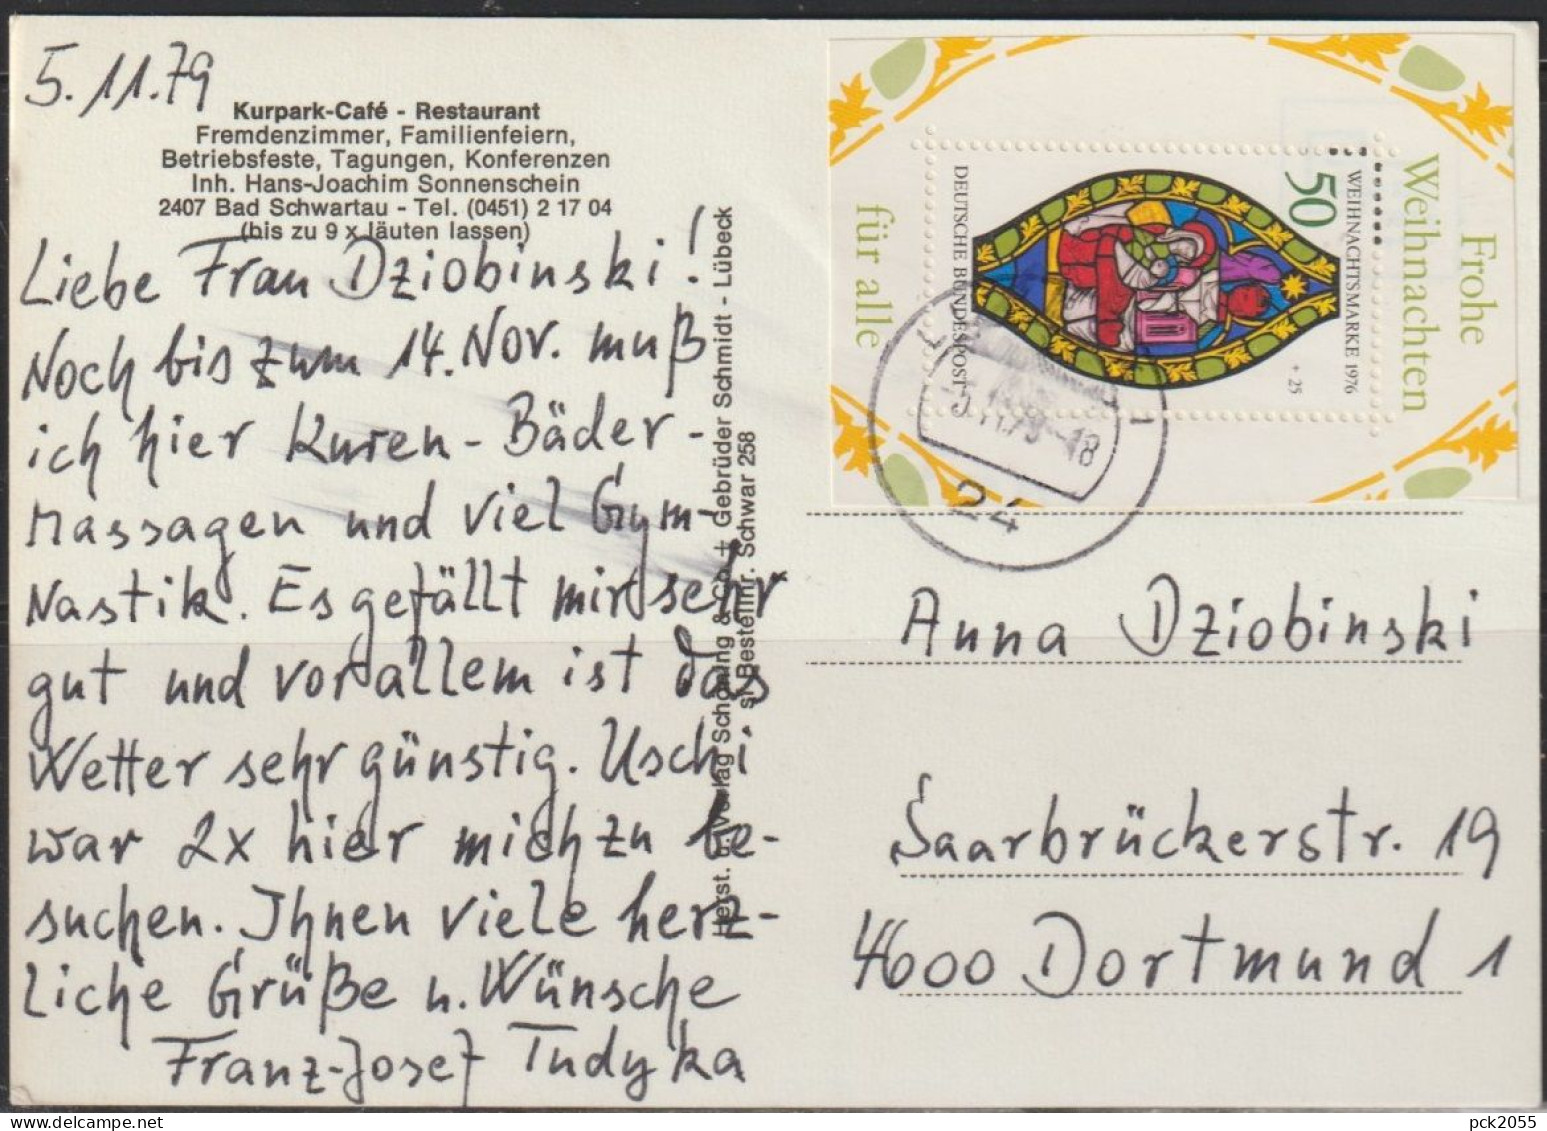 5.11.79
Kurpark-Café - Restaurant
Fremdenzimmer, Familienfeiern,
Betriebsfeste, Tagungen, Konferenzen
Inh. Hans-Joachim Sonnenschein
2407 Bad Schwartau - Tel. (0451) 2 17 04
(bis zu 9 x läuten lassen)
Liebe Frau Dziobinski!
Noch bis zum 14. Nov. muß
ich hier Kuren - Bäder -
Massagen und viel Gym-
Nastik. Es gefällt mir sehr
gut und vor allem ist das
Wetter sehr günstig. Uschi
war 2x hier mich zu be-
suchen. Ihnen viele herz-
liche Grüße u. Wünsche
Franz-Josef Tudyka
Herst. Verlag Schöning & Co + Gebrüder Schmidt - Lübeck
Bestellnr. Schwar 258
Frohe
Weihnachten
für alle
WEIHNACHTSMARKE 1976
50
+ 25
DEUTSCHE BUNDESPOST
-5.11.79-18
24
Anna Dziobinski
Saarbrückerstr. 19
4600 Dortmund 1
pck2055